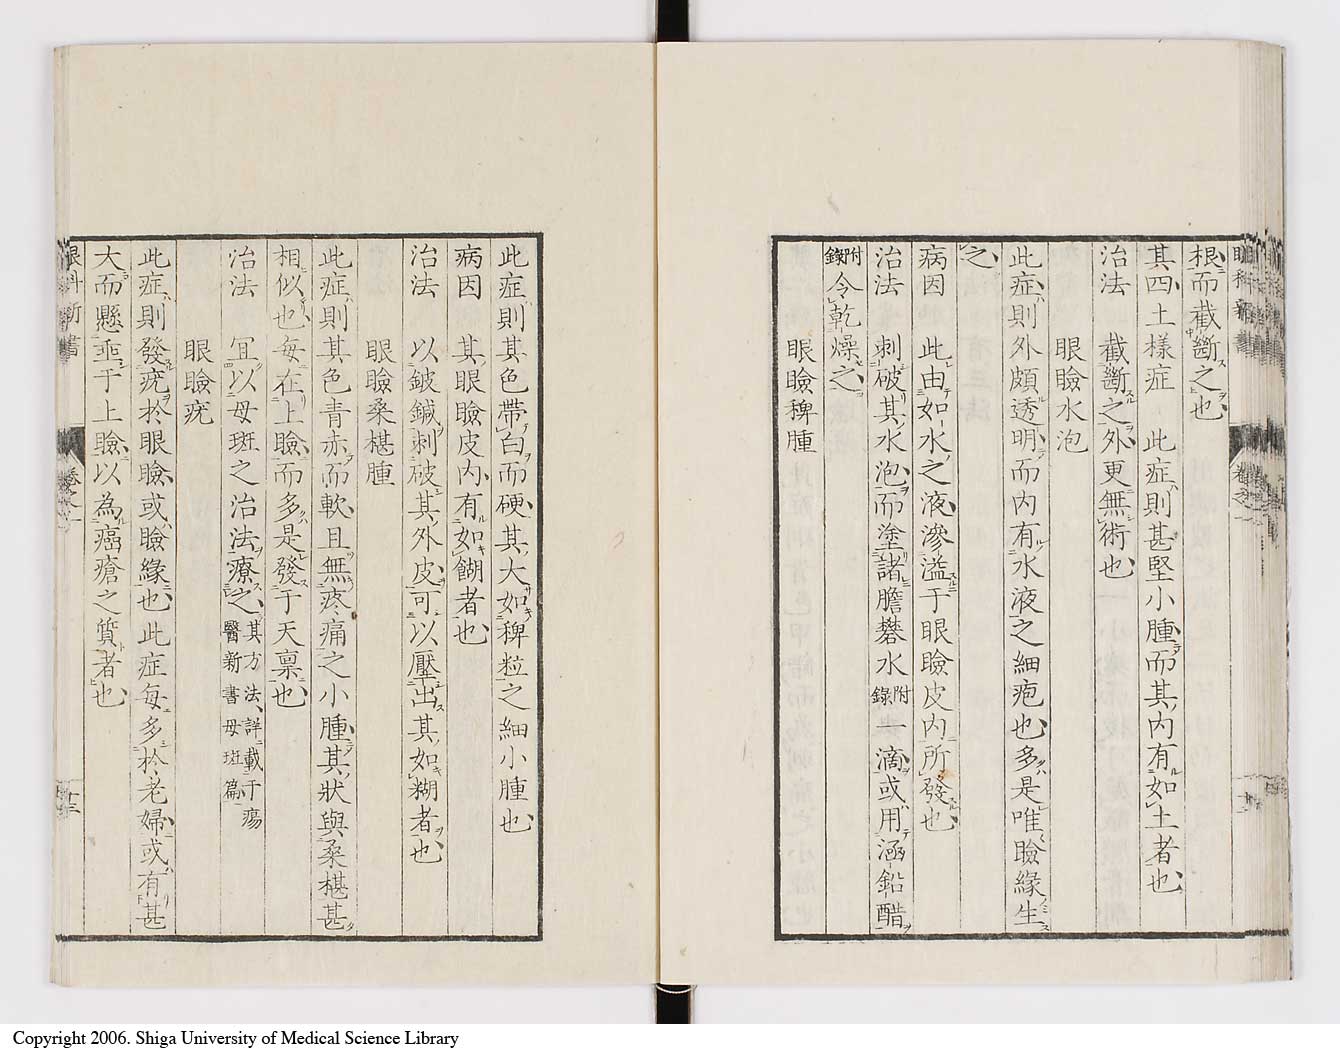 根而截斷之也
其四土樣症　此症則甚堅小腫而其內有如土者也
治法　截斷之外更無術也
眼瞼水泡
此症則外頗透明而內有水液之細疱也多是唯瞼緣生
之
病因　此由如水之液滲溢于眼瞼皮內所發也
治法　刺破其水泡而塗諸膽礬水附錄一滴或用涵鉛醋
附錄令乾燥之
眼瞼稗腫
此症則其色帶白而硬其大如稗粒之細小腫也
病因　其眼瞼皮內有如餬者也
治法　以鈹鍼刺破其外皮可以壓出其如糊者也
眼瞼桑椹腫
此症則其色青赤而軟且無疼痛之小腫其狀與桑椹甚
相似也每在上瞼而多是發于天稟也
治法　冝以母斑之治法療之其方法詳載于瘍
醫新書母斑篇
眼瞼疣
此症則發疣於眼瞼或瞼緣也此症每多於老婦或有甚
大而懸乖于上瞼以為癌瘡之質者也
眼科新書
卷之一
十二
Copyright 2006. Shiga University of Medical Science Library